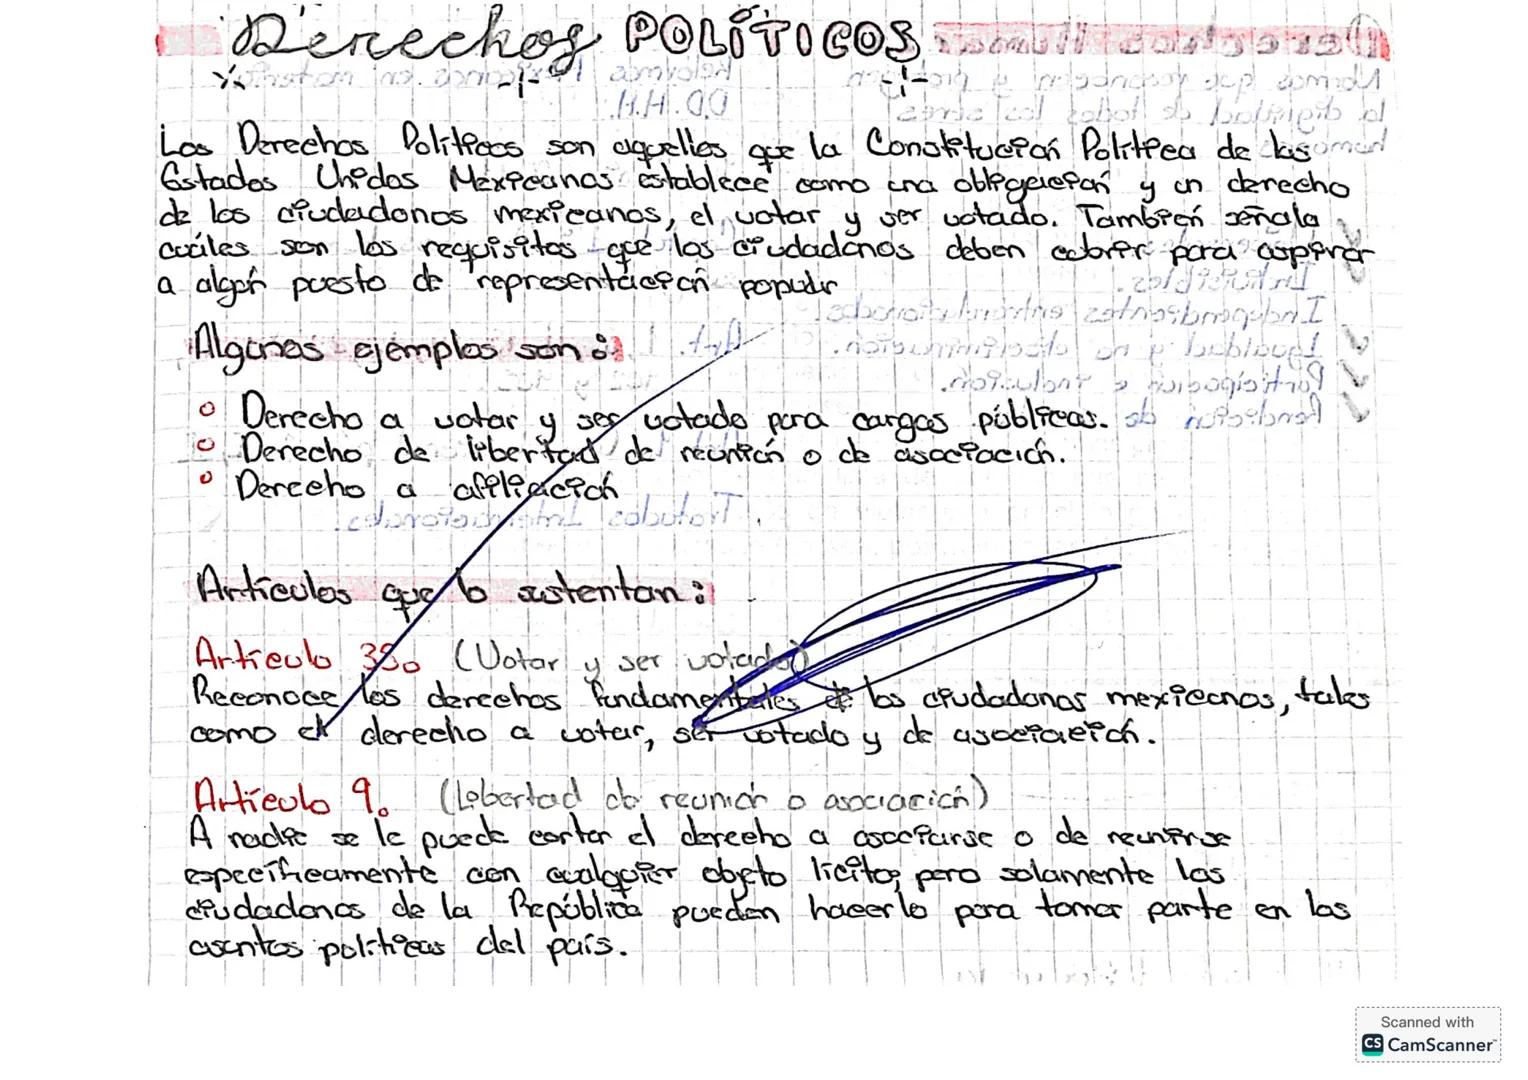 Derechos POLÍTICOS
Los Derechos Políticos son aquellos que la Constitución Política de los
Estados Unidos Mexicanos establece como una obligación y un derecho
de los ciudadanos mexicanos, el votar y ser votado. También señala
cuáles son los requisitos que los ciudadanos deben cubrir para aspirar
a algún puesto de representación popular
Algunos ejemplos son:
Derecho a votar y ser votado para cargos públicos.
Derecho de libertad de reunión o de asociación.
Derecho a afiliación
Artículos que lo sustentan:
Artículo 35. (Votar y ser votado)
Reconoce los derechos fundamentales de los ciudadanos mexicanos, tales
como el derecho a votar, ser votado y de asociación.
Artículo 9. (Libertad de reunión o asociación)
A nadie se le puede cortar el derecho a asociarse o de reunirse
específicamente con cualquier objeto lícito, pero solamente los
ciudadanos de la República pueden hacerlo para tomar parte en los
asuntos políticos del país.
Scanned with
CS CamScanner